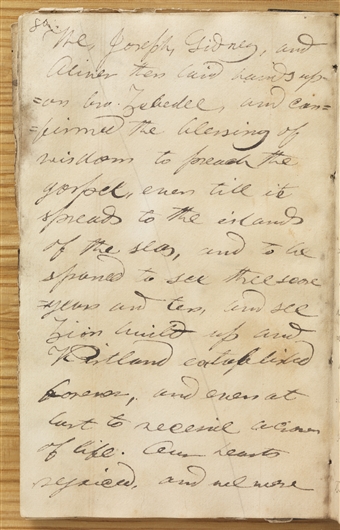 84.
We, Joseph, Sidney, and
Oliver then laid hands up-
=on bro. Zebedee, and con=
=firmed the blessing of
wisdom to preach the
gospel, even till it
spreads to the islands
of the seas, and to be
spared to see three score
years and ten, and see
Zion built up and
Kirtland established
forever, and even at
last to receive a crown
of life. Our hearts
rejoiced, and we were